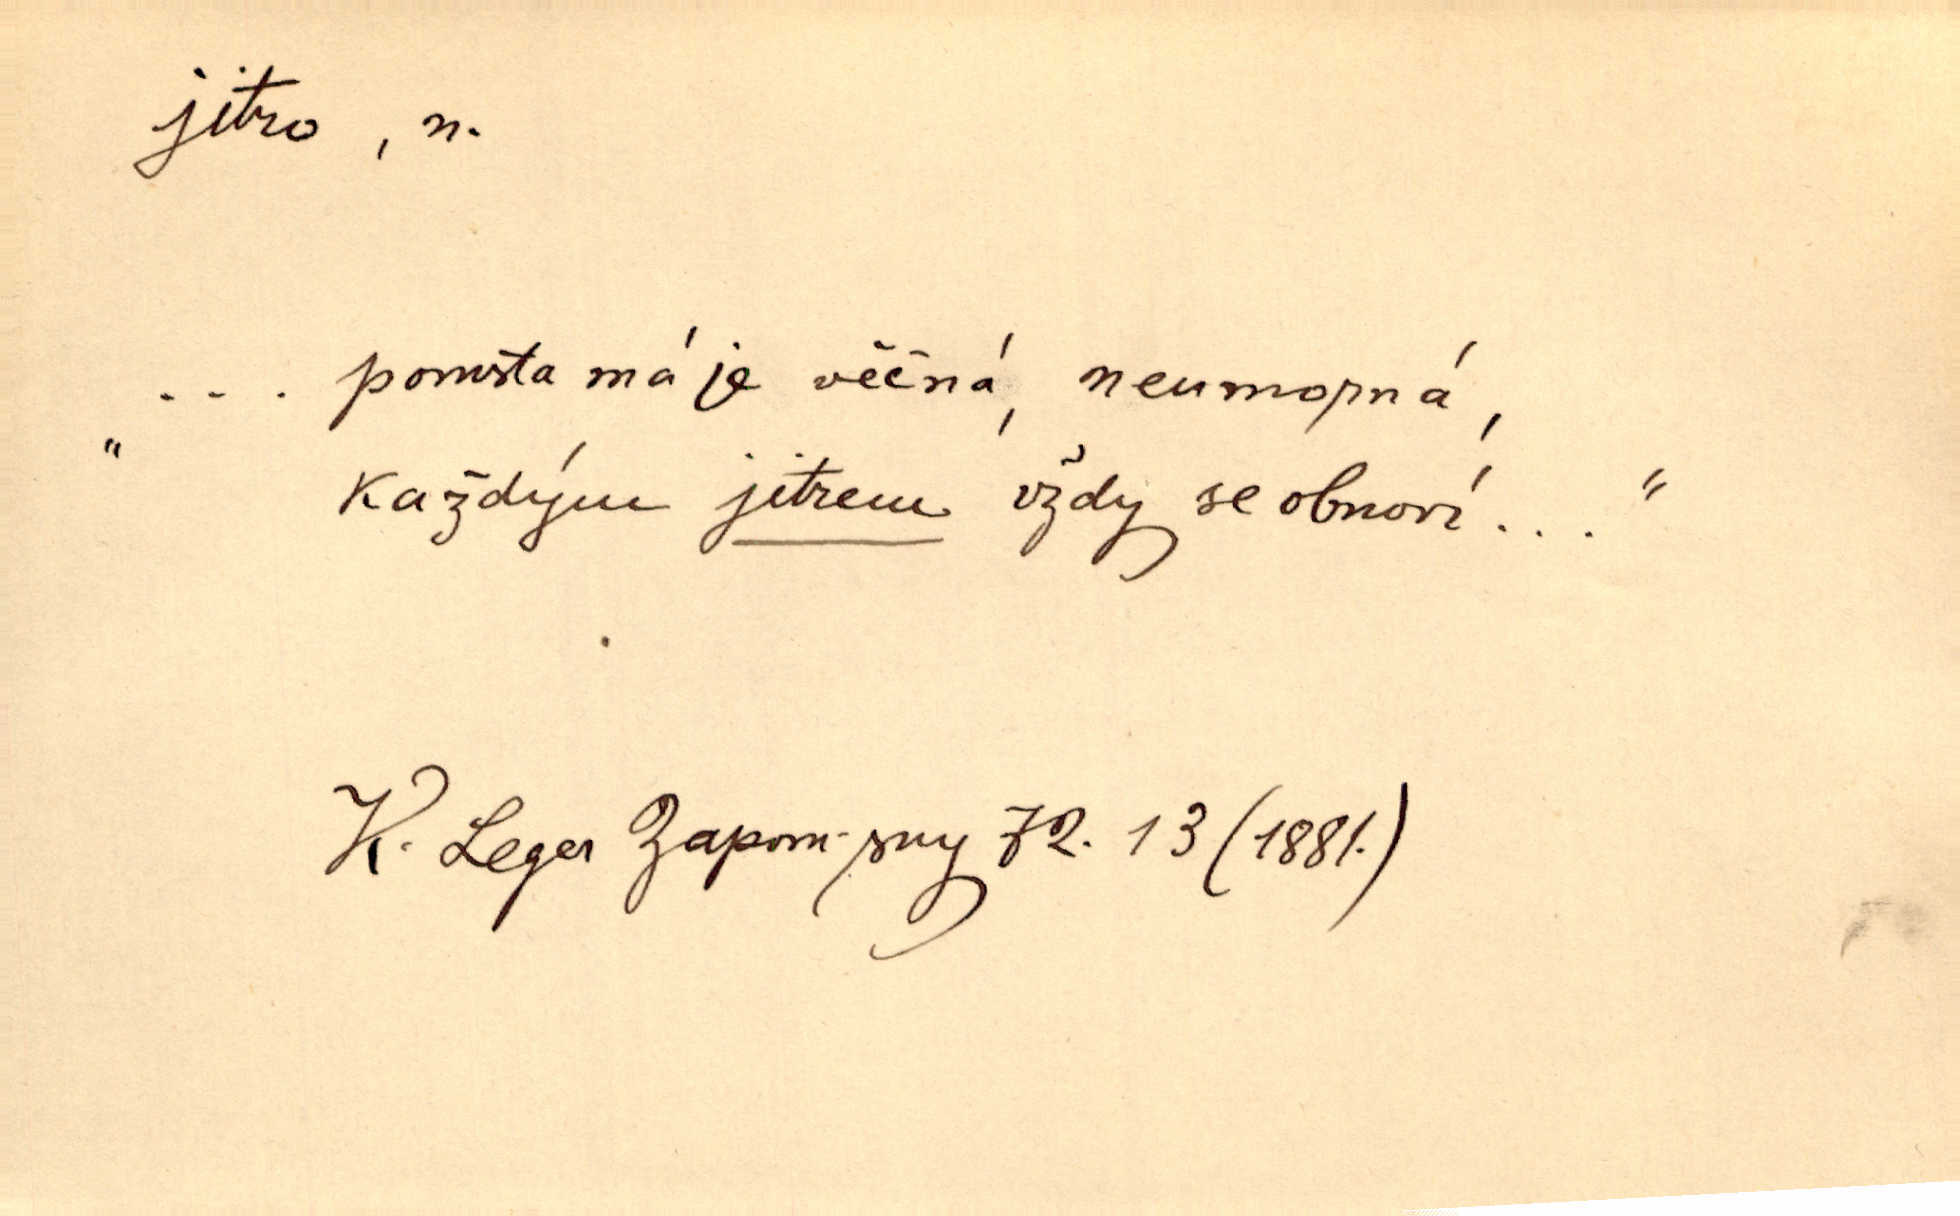 jitro, n.
„... pomsta má je věčná, neumorná,
každým jitrem vždy se obnoví..."
K. Leger Zapom. sny 72. 13 (1881.)